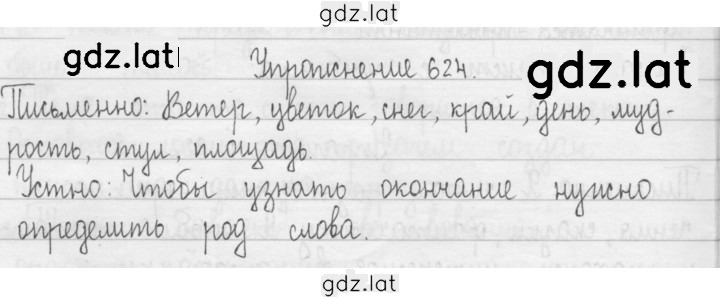 gdz.lat
gdz.lat
Упражнение 624.
gdz.lat
Письменно: Ветер, цветок, снег, край, день, муд-
рость, стул, площадь.
Устно: Чтобы узнать окончание нужно
определить род слова.
gdz.lat